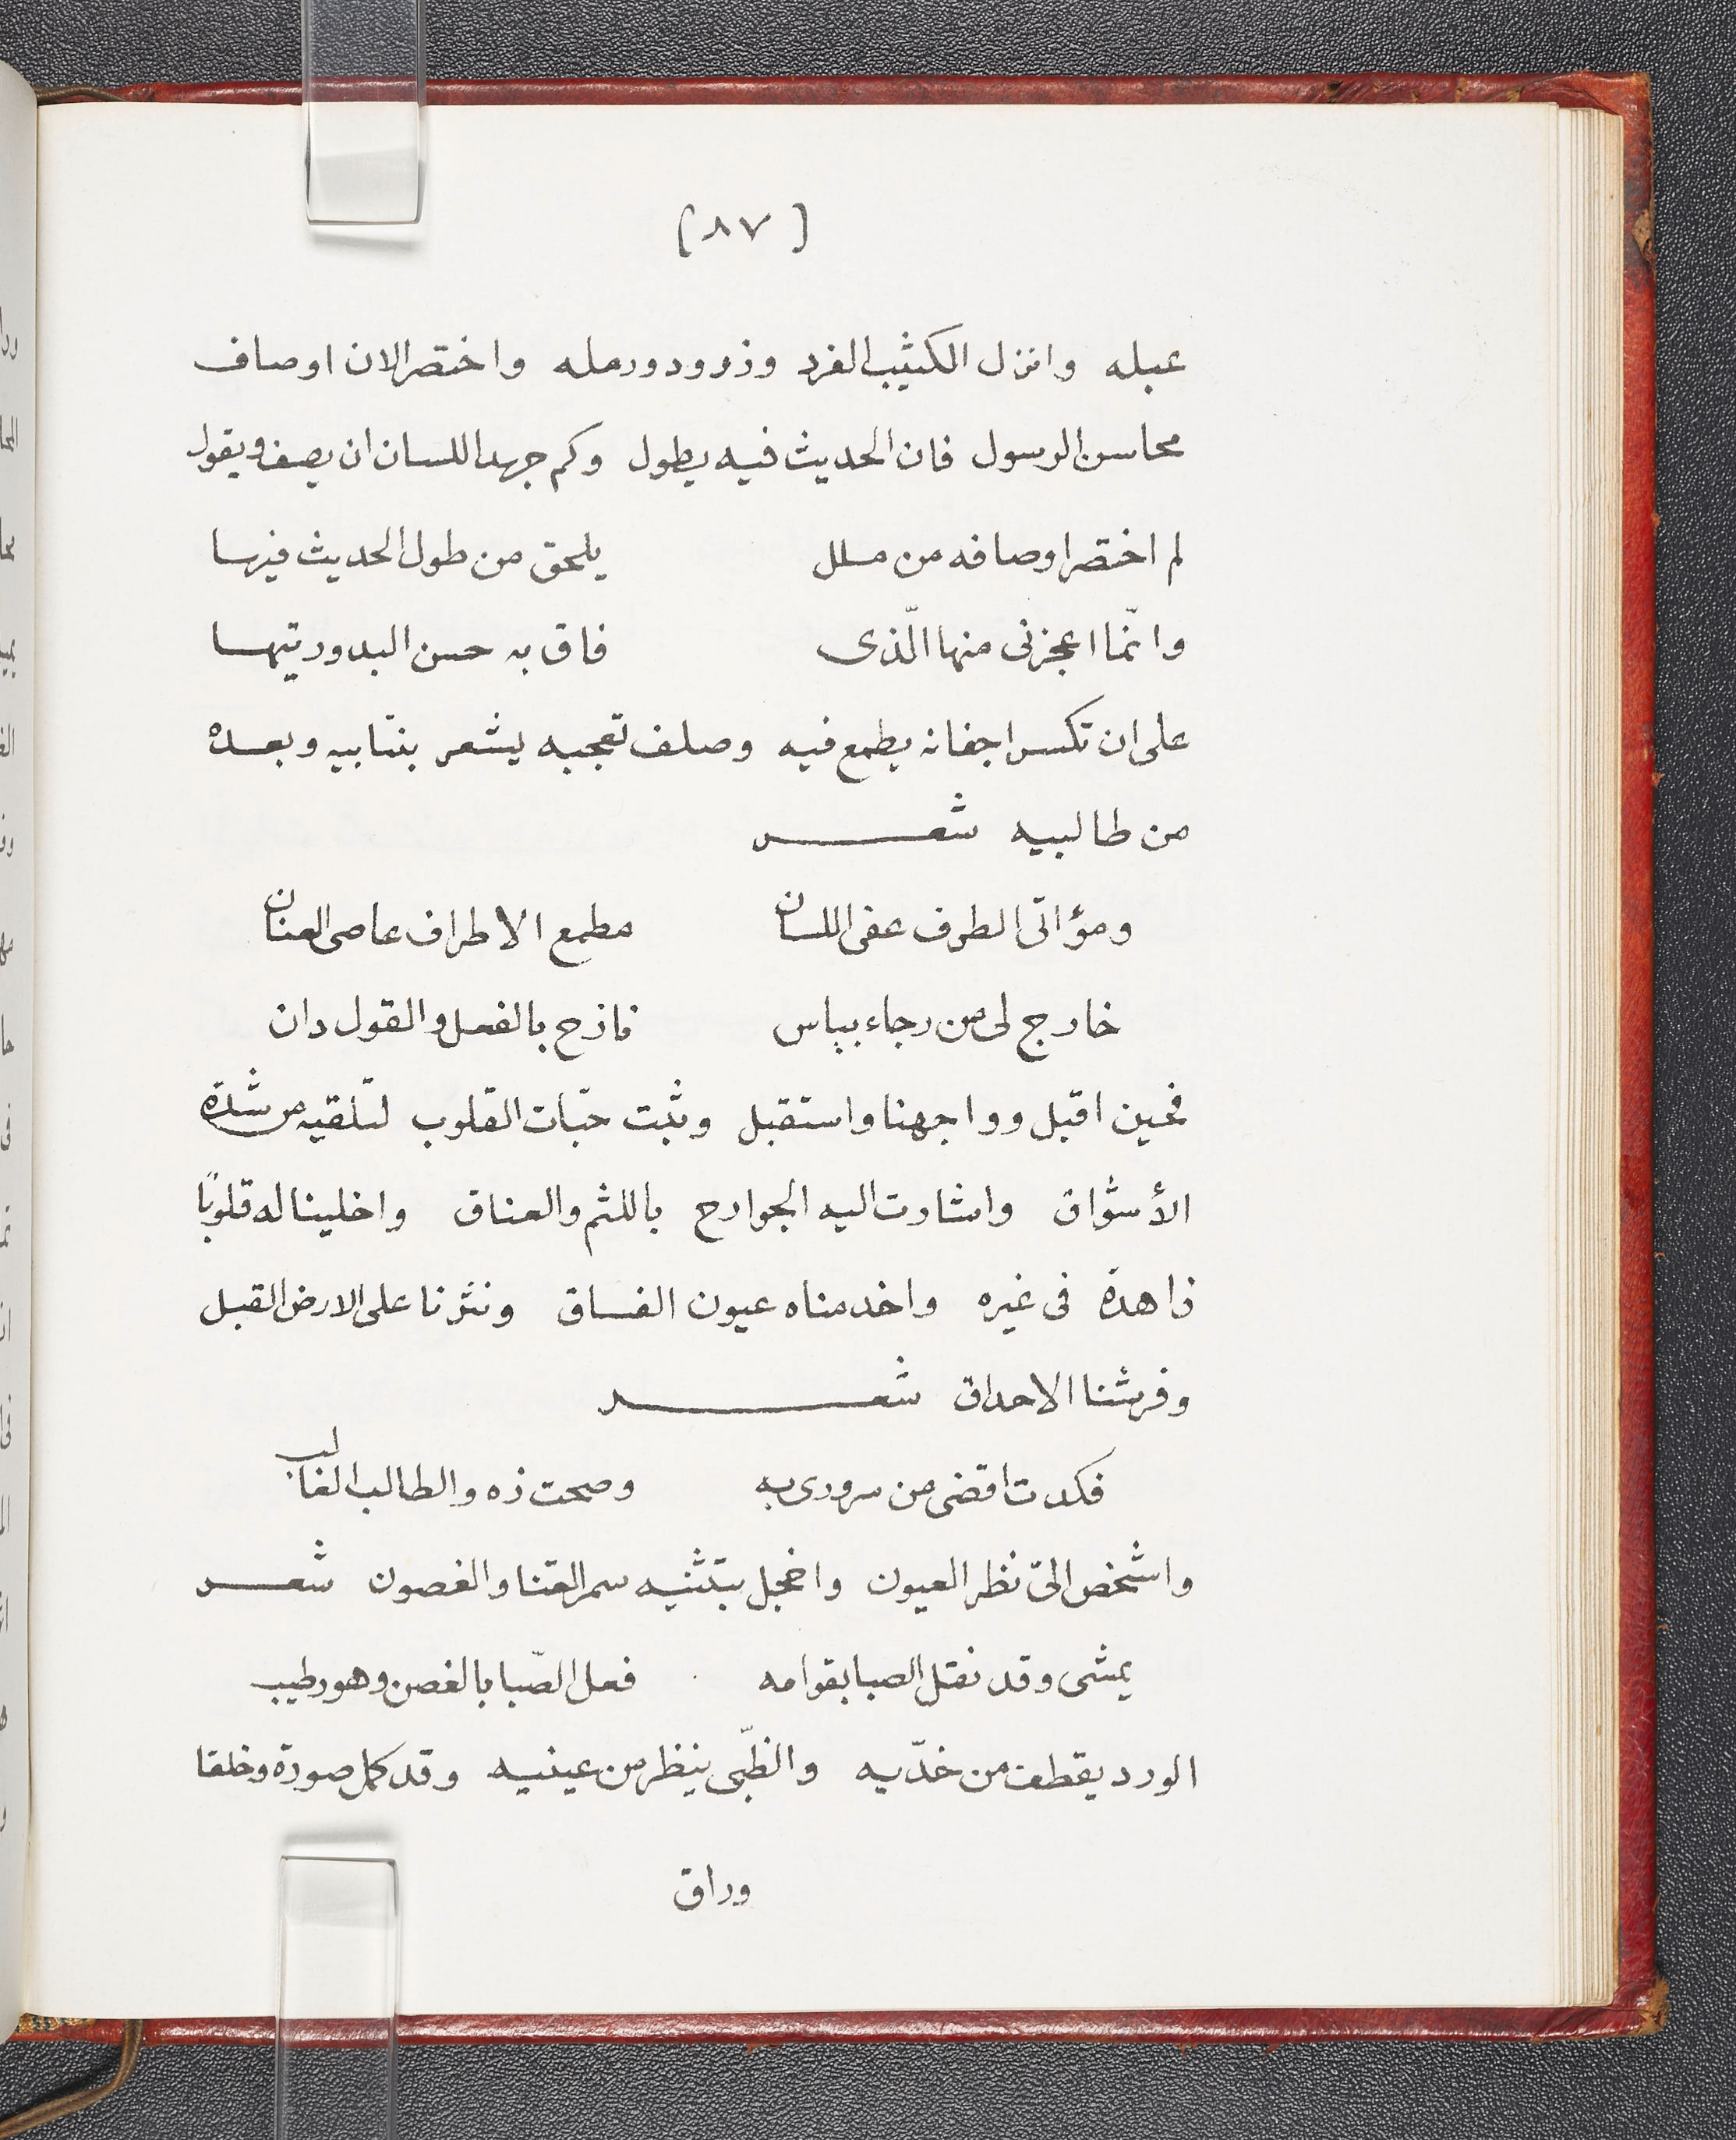 [٨٧]
عبله وانزل الكثيب الفرد وزرود ورمله واختصر الان اوصاف
محاسن الرسول فان الحديث فيه يطول وكم جهد اللسان ان يصف ويقول
لم اختصر اوصافه من ملل يلحق من طول الحديث فيها
وانّما اعجزنى منها الّذى فاق به حسن البدور تيها
على ان تكسر اجفانه يطمع فيه وصلف تعجبه يشعر بتنابيه وبعده
من طالبيه شعر
ومؤاتى الطرف عفى اللسان مطمع الاطراف عاصى العنان
خارج لى من رجاء بياس نازح بالفعل والقول دان
فحين اقبل وواجهنا واستقبل وثبت حبّات القلوب لتلقيه من شدة
الأشواق واشارت اليه الجوارح باللثم والعناق واخلينا له قلوبًا
زاهدة فى غيره واخدمناه عيون الفساق ونثرنا على الارض القبل
وفرشنا الاحداق شعر
فكدت اقضى من سرورى به وصحت زه والطالب الغالب
واشخص الىّ نظر العيون واخجل بتثنيه سمر القنا والغصون شعر
يمشى وقد نقل الصبا بقوامه فعل الصّبا بالغصن وهو رطيب
الورد يقطف من خدّيه والظّبى ينظر من عينيه وقد كمل صورة وخلقا
وراق